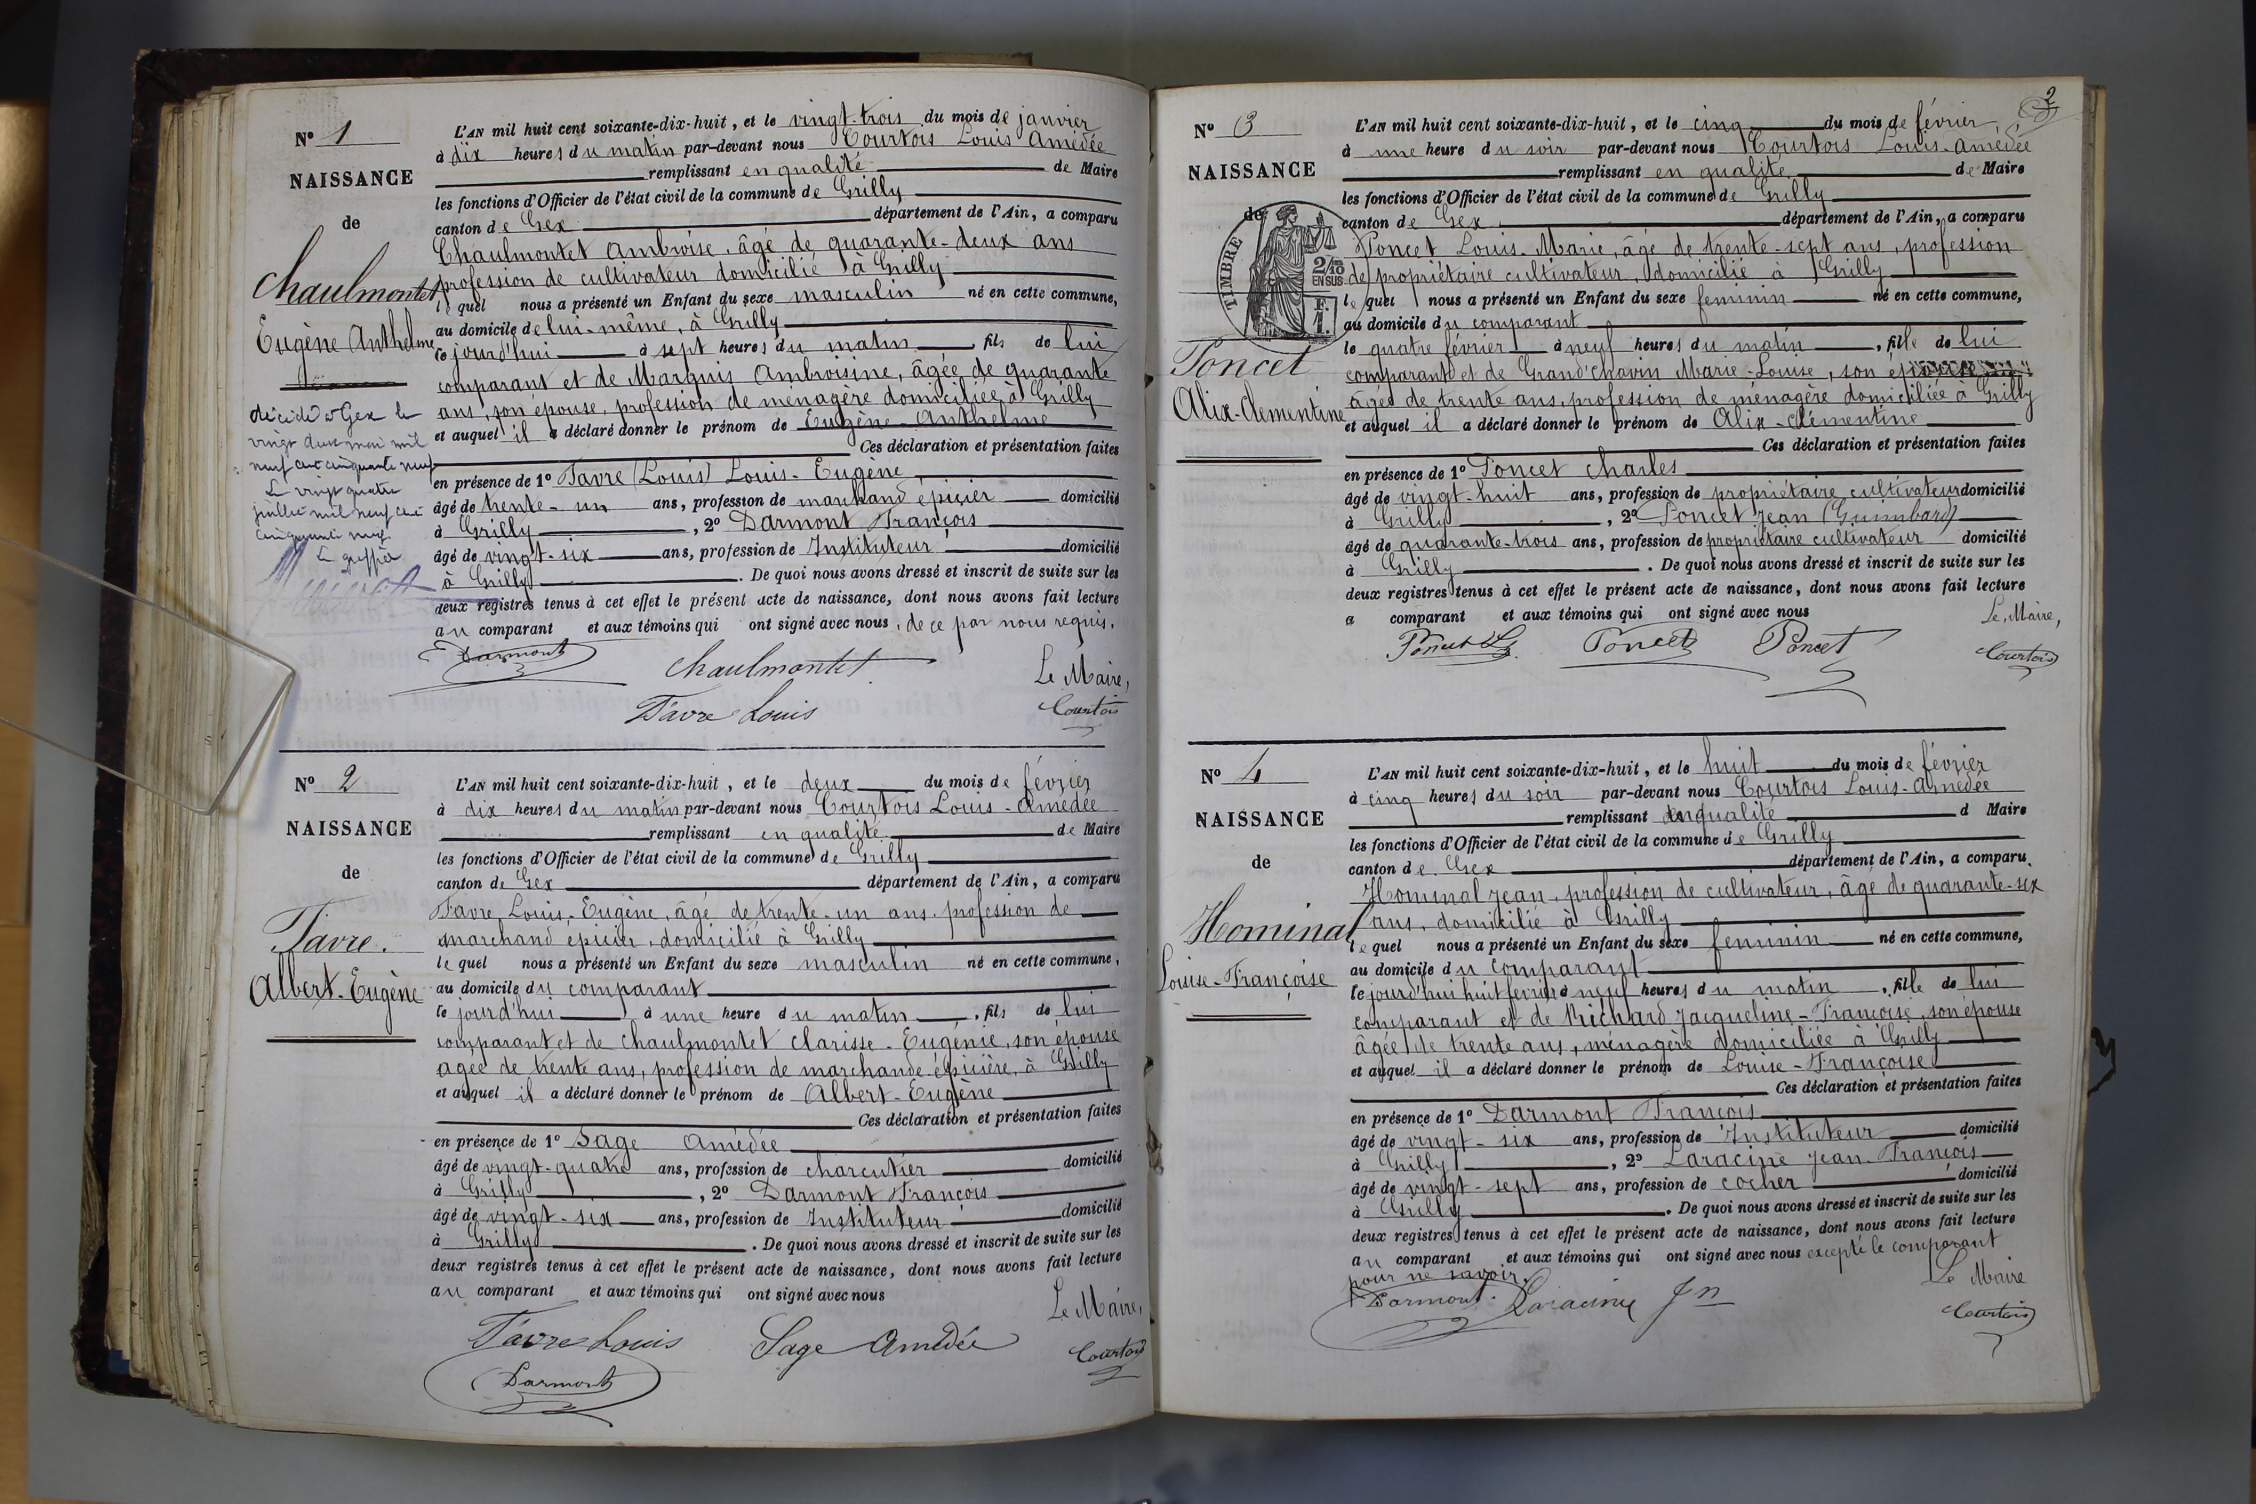 N° 1
NAISSANCE
de
Chaulmontet
Eugène Anthelme
décédé à Gex le
vingt deux mai mil
neuf cent cinquante neuf
Le vingt quatre
juillet mil neuf cent
cinquante neuf
Le greffier
L'AN mil huit cent soixante-dix-huit, et le vingt-trois du mois de janvier
à dix heures du matin par-devant nous Courtois Louis Amédée
remplissant en qualité de Maire
les fonctions d'Officier de l'état civil de la commune de Grilly
canton de Gex département de l'Ain, a comparu
Chaulmontet Ambroise, âgé de quarante-deux ans
profession de cultivateur domicilié à Grilly
lequel nous a présenté un Enfant du sexe masculin né en cette commune,
au domicile de lui-même, à Grilly
le jourd'hui à sept heures du matin, fils de lui
comparant et de Marquis Ambroisine, âgée de quarante
ans, son épouse, profession de ménagère domiciliée à Grilly
et auquel il a déclaré donner le prénom de Eugène-Anthelme
Ces déclaration et présentation faites
en présence de 1° Favre (Louis) Louis-Eugène
âgé de trente-un ans, profession de marchand épicier domicilié
à Grilly, 2° Darmont François
âgé de vingt-six ans, profession de Instituteur domicilié
à Grilly. De quoi nous avons dressé et inscrit de suite sur les
deux registres tenus à cet effet le présent acte de naissance, dont nous avons fait lecture
au comparant et aux témoins qui ont signé avec nous, de ce par nous requis.
Darmont Chaulmontet Le Maire,
Favre Louis Courtois
N° 2
NAISSANCE
de
Favre.
Albert-Eugène
L'AN mil huit cent soixante-dix-huit, et le deux du mois de février
à dix heures du matin par-devant nous Courtois Louis-Amédée
remplissant en qualité de Maire
les fonctions d'Officier de l'état civil de la commune de Grilly
canton de Gex département de l'Ain, a comparu
Favre, Louis-Eugène, âgé de trente-un ans, profession de
marchand épicier, domicilié à Grilly
lequel nous a présenté un Enfant du sexe masculin né en cette commune,
au domicile du comparant
le jourd'hui à une heure du matin, fils de lui
comparant et de Chaulmontet Clarisse-Eugénie, son épouse
agée de trente ans, profession de marchande-épicière, à Grilly
et auquel il a déclaré donner le prénom de Albert-Eugène
Ces déclaration et présentation faites
en présence de 1° Sage Amédée
âgé de vingt-quatre ans, profession de charcutier domicilié
à Grilly, 2° Darmont François
âgé de vingt-six ans, profession de Instituteur domicilié
à Grilly. De quoi nous avons dressé et inscrit de suite sur les
deux registres tenus à cet effet le présent acte de naissance, dont nous avons fait lecture
au comparant et aux témoins qui ont signé avec nous
Le Maire,
Favre Louis Sage Amédée Courtois
Darmont
2
N° 3
NAISSANCE
de
TIMBRE
2/10
EN SUS
F.
1.
Poncet
Alix-Clementine
L'AN mil huit cent soixante-dix-huit, et le cinq du mois de février,
à une heure du soir par-devant nous Courtois Louis-Amédée
remplissant en qualité de Maire
les fonctions d'Officier de l'état civil de la commune de Grilly
canton de Gex département de l'Ain, a comparu
Poncet Louis-Marie, âgé de trente-sept ans, profession
de propriétaire cultivateur, domicilié à Grilly
lequel nous a présenté un Enfant du sexe feminin né en cette commune,
au domicile du comparant
le quatre février à neuf heures du matin, fille de lui
comparant et de Grand'chavin Marie-Louise, son épouse
âgée de trente ans, profession de ménagère domiciliée à Grilly
et auquel il a déclaré donner le prénom de Alix-Clémentine
Ces déclaration et présentation faites
en présence de 1° Poncet Charles
âgé de vingt-huit ans, profession de propriétaire cultivateur domicilié
à Grilly, 2° Poncet Jean
âgé de quarante-trois ans, profession de propriétaire cultivateur domicilié
à Grilly. De quoi nous avons dressé et inscrit de suite sur les
deux registres tenus à cet effet le présent acte de naissance, dont nous avons fait lecture
a comparant et aux témoins qui ont signé avec nous
Le Maire,
Poncet Poncet Poncet Courtois
N° 4
NAISSANCE
de
Hominal
Louise-Françoise
L'AN mil huit cent soixante-dix-huit, et le huit du mois de février
à cinq heures du soir par-devant nous Courtois Louis-Amédée
remplissant en qualité d Maire
les fonctions d'Officier de l'état civil de la commune de Grilly
canton de Gex département de l'Ain, a comparu
Hominal Jean, profession de cultivateur, âgé de quarante-six
ans, domicilié à Grilly
lequel nous a présenté un Enfant du sexe feminin né en cette commune,
au domicile du comparant
le jourd'hui huit février à neuf heures du matin, fille de lui
comparant et de Richard Jacqueline-Françoise, son épouse
âgée de trente ans, ménagère domiciliée à Grilly
et auquel il a déclaré donner le prénom de Louise-Françoise
Ces déclaration et présentation faites
en présence de 1° Darmont François
âgé de vingt-six ans, profession de Instituteur domicilié
à Grilly, 2° Laracine Jean-François
âgé de vingt-sept ans, profession de cocher domicilié
à Grilly. De quoi nous avons dressé et inscrit de suite sur les
deux registres tenus à cet effet le présent acte de naissance, dont nous avons fait lecture
au comparant et aux témoins qui ont signé avec nous excepté le comparant
pour ne savoir. Le Maire
Darmont Laracine Jn Courtois